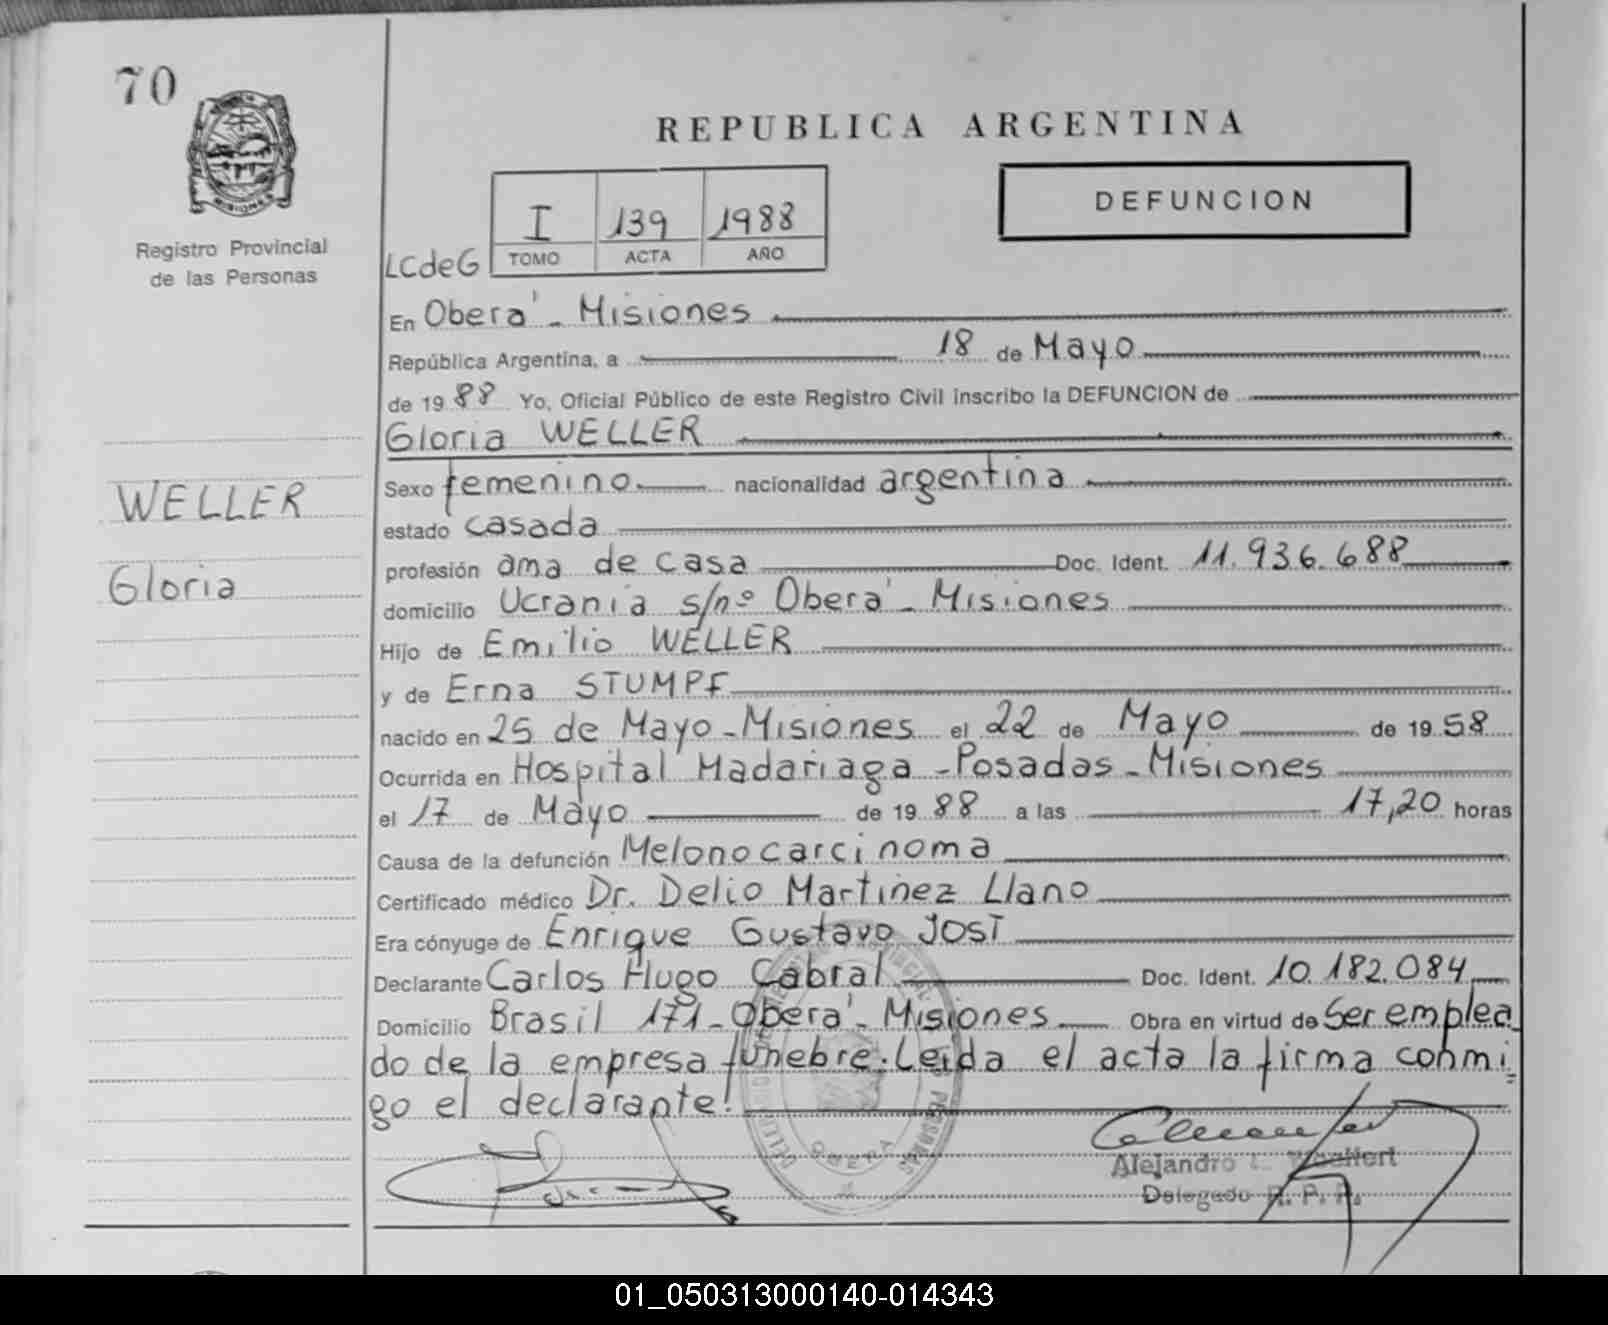 70
MISIONES
Registro Provincial
de las Personas
REPUBLICA ARGENTINA
DEFUNCION
I 139 1988
TOMO ACTA AÑO
LCdeG
En Oberá - Misiones
República Argentina, a 18 de Mayo
de 1988 Yo, Oficial Público de este Registro Civil inscribo la DEFUNCION de
Gloria WELLER
WELLER
Gloria
Sexo femenino nacionalidad argentina
estado casada
profesión ama de casa Doc. Ident. 11.936.688
domicilio Ucrania s/nº Oberá - Misiones
Hijo de Emilio WELLER
y de Erna STUMPF
nacido en 25 de Mayo - Misiones el 22 de Mayo de 1958
Ocurrida en Hospital Madariaga - Posadas - Misiones
el 17 de Mayo de 1988 a las 17,20 horas
Causa de la defunción Melonocarcinoma
Certificado médico Dr. Delio Martinez Llano
Era cónyuge de Enrique Gustavo JOST
Declarante Carlos Hugo Cabral Doc. Ident. 10.182.084
Domicilio Brasil 171 - Oberá - Misiones Obra en virtud de Ser emplea
do de la empresa fúnebre. Leida el acta la firma conmi
go el declarante!
OBERA
Alejandro
Delegado R. P. P.
01_050313000140-014343